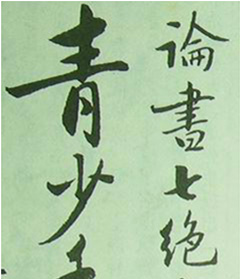 論書七绝
青少